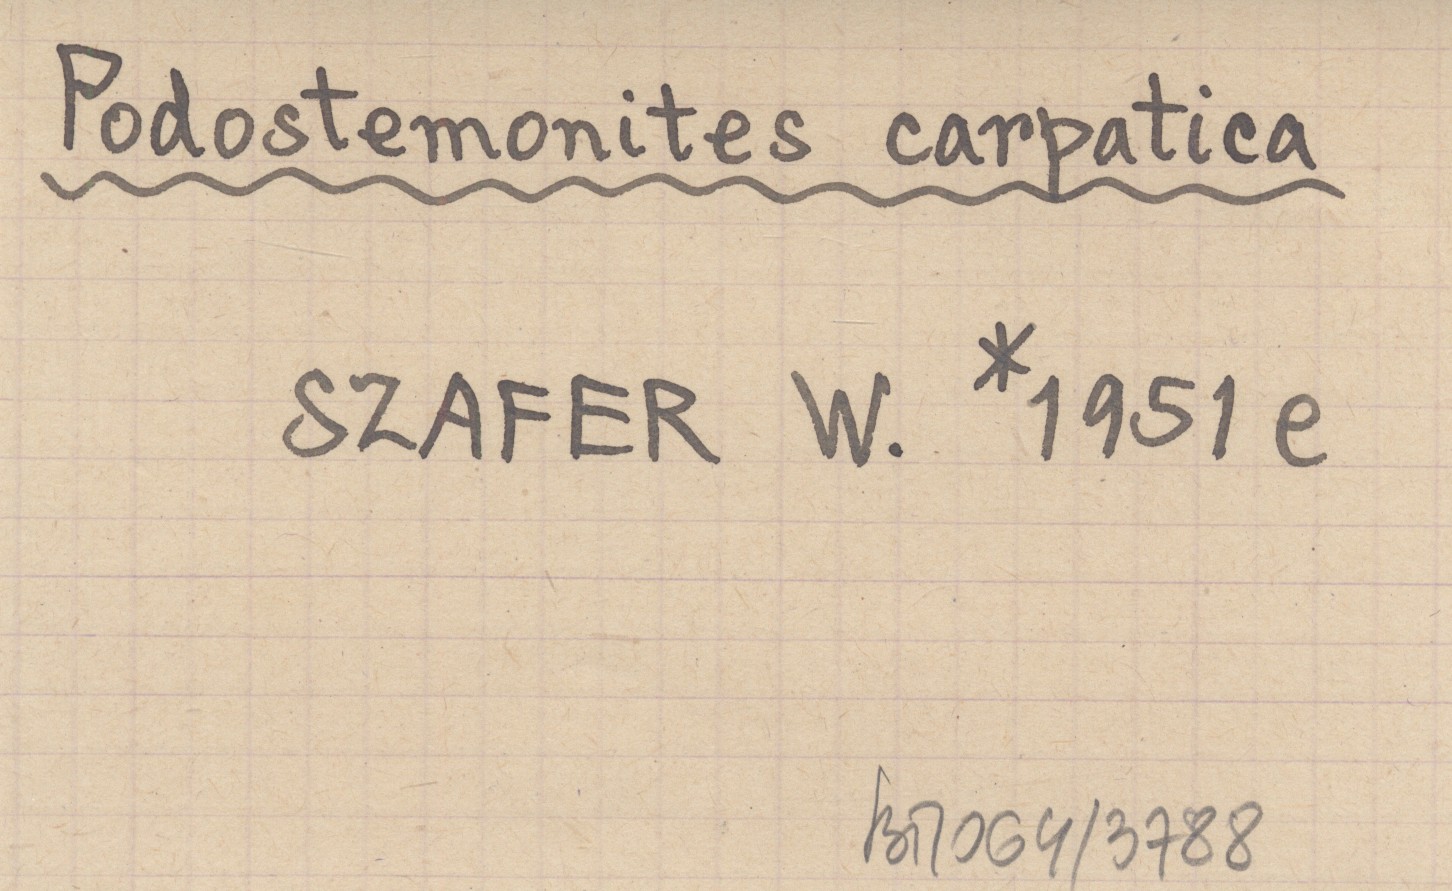 Podostemonites carpatica
SZAFER W. *1951 e
/3788